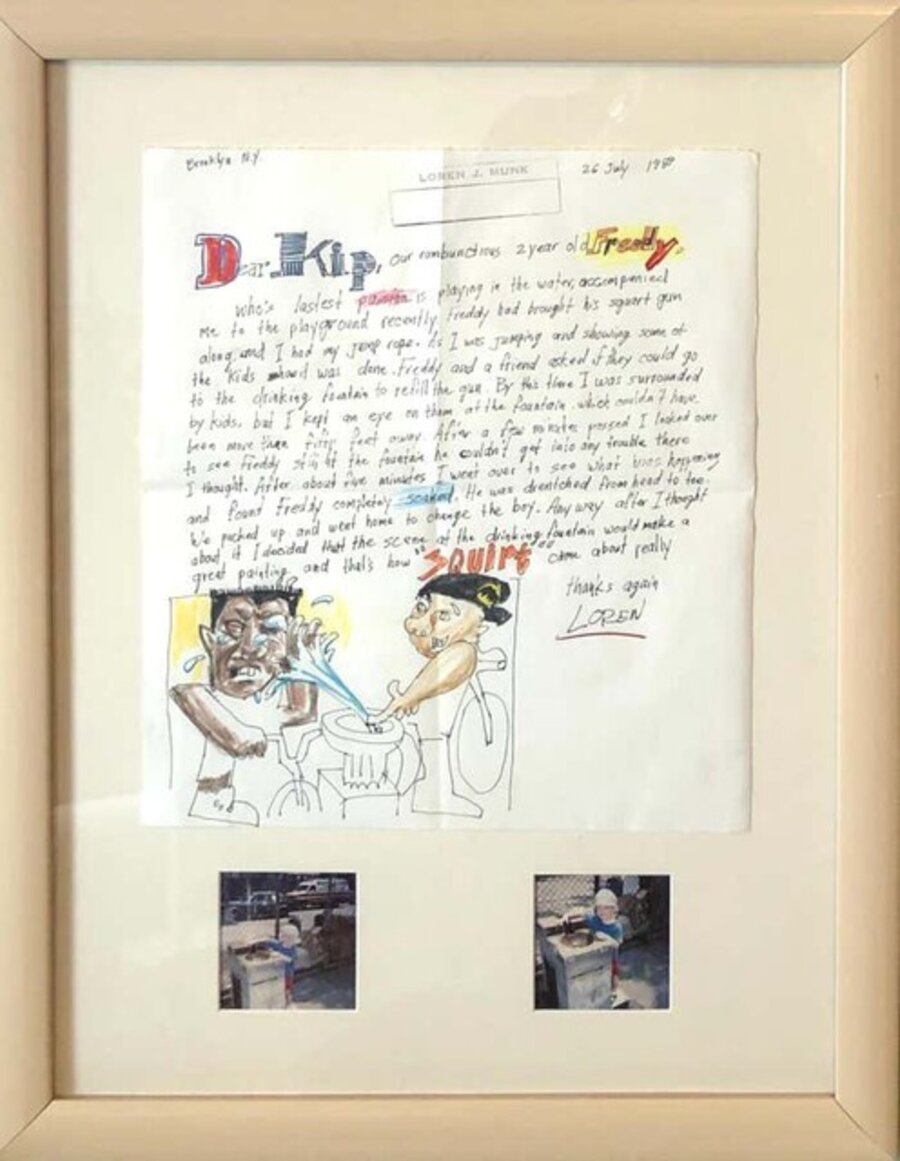 Brooklyn N.Y.
LOREN J. MUNK
26 July 1989
Dear Kip, our rambunctious 2 year old Freddy,
who's lastest passion is playing in the water, accompanied
me to the playground recently, Freddy had brought his squart gun
along, and I had my jump rope. As I was jumping and showing some of
the kids how it was done. Freddy and a friend asked if they could go
to the drinking fountain to refill the gun. By this time I was surrounded
by kids, but I kept an eye on them at the fountain, which couldn't have
been more than fifty feet away. After a few minutes passed I looked over
to see Freddy still at the fountain he couldn't get into any trouble there
I thought. After about five minutes I went over to see what was happening
and found Freddy completely soaked. He was drentched from head to toe.
We packed up and went home to change the boy. Any way after I thought
about it I decided that the scene at the drinking fountain would make a
great painting and that's how "SQUIRT" came about really
thanks again
LOREN